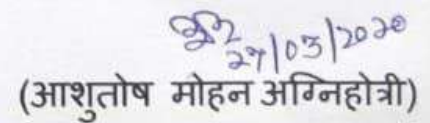 27/03/2020
(आशुतोष मोहन अग्निहोत्री)